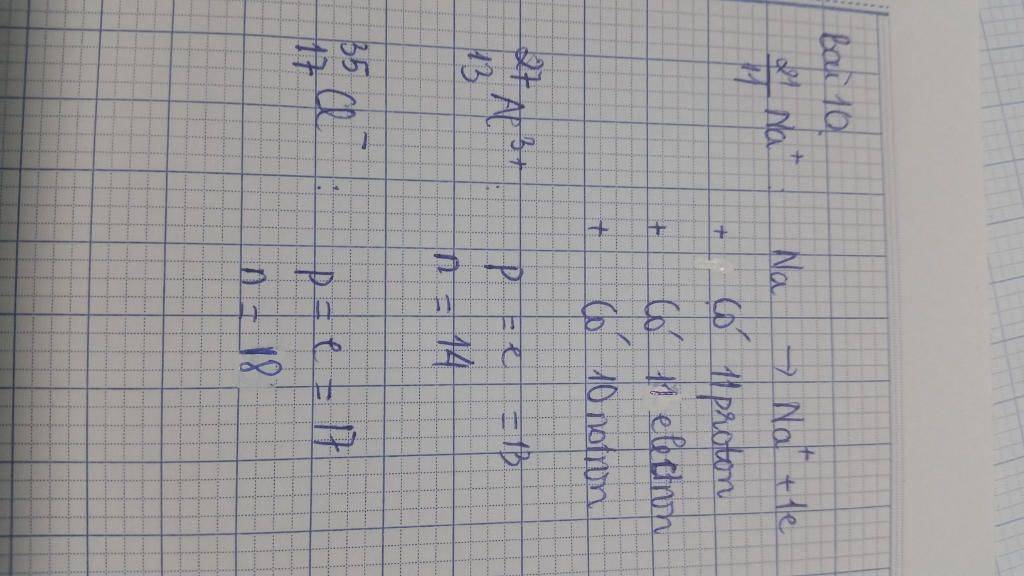 Bài 10.
21 11 Na+ : Na → Na+ + 1e
+ Có 11 proton
+ Có 11 electron
+ Có 10 notron
27 13 Al 3+ : p = e = 13
n = 14
35 17 Cl - : p = e = 17
n = 18